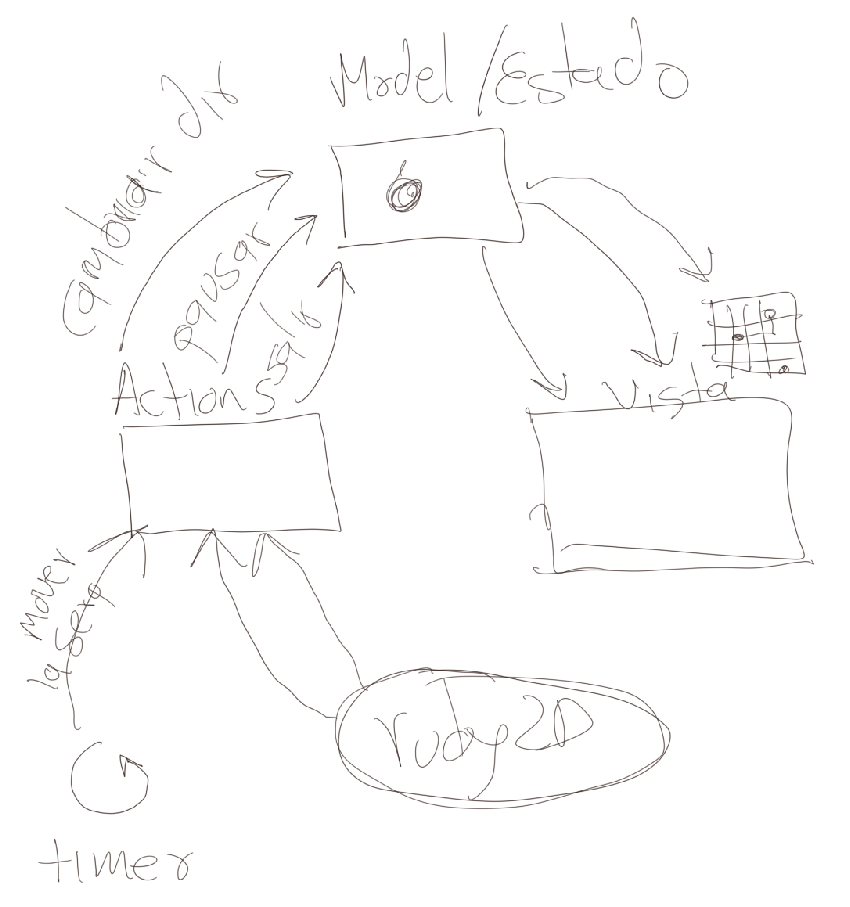 Model/Estado
Cambair dir
pausar
salir
Actions
Vista
mover
la serp
ruby2D
timer